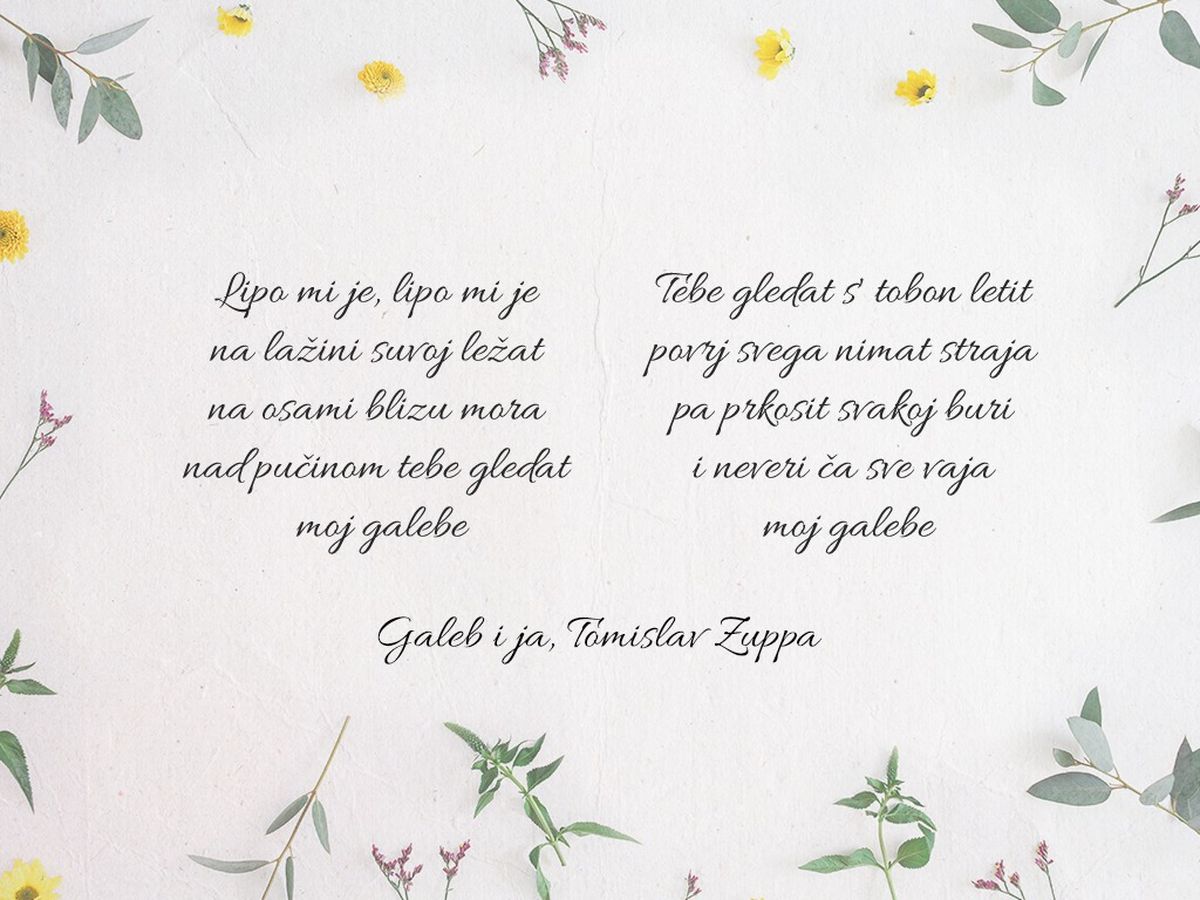 Lipo mi je, lipo mi je
na lažini suvoj ležat
na osami blizu mora
nad pučinom tebe gledat
moj galebe
Tebe gledat s' tobon letit
povrj svega nimat straja
pa prkosit svakoj buri
i neveri ča sve vaja
moj galebe
Galeb i ja, Tomislav Zuppa